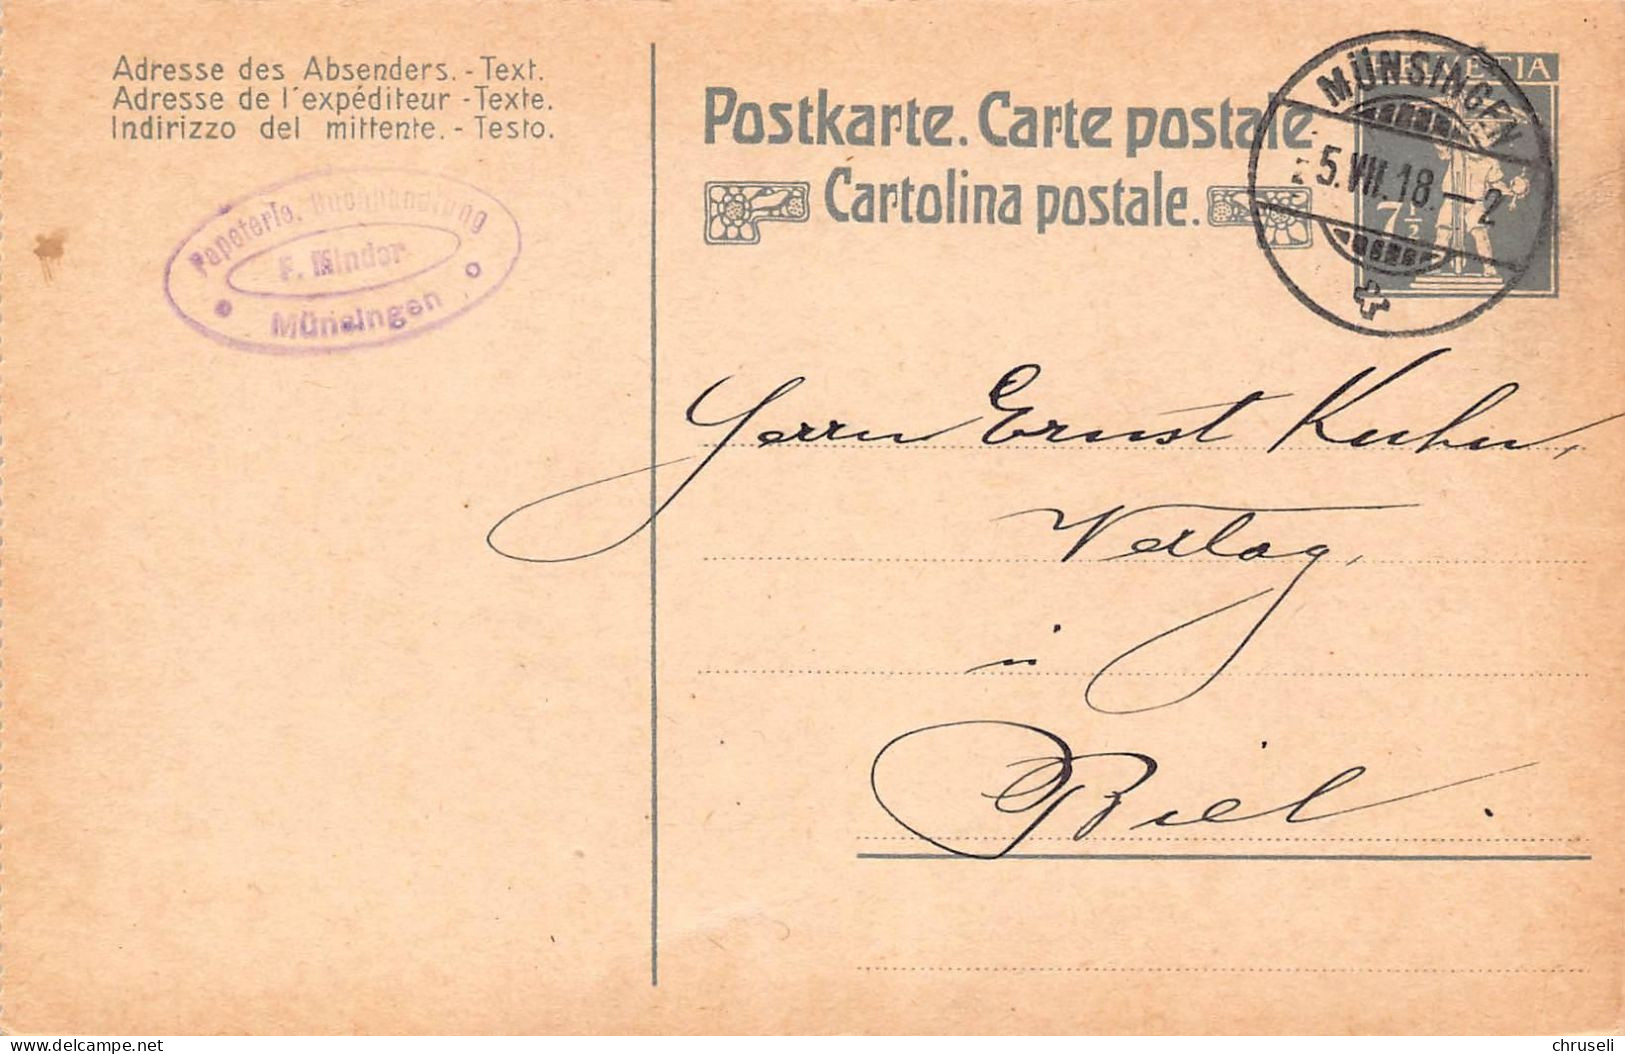 Adresse des Absenders. - Text.
Adresse de l'expéditeur - Texte.
Indirizzo del mittente. - Testo.
Papeterie. Buchhandlung
F. Minder
Münsingen
Postkarte. Carte postale
Cartolina postale.
HELVETIA
7½
MÜNSINGEN
5.VII.18.-2
Herrn Ernst Kuhn,
Verlag,
in
Biel.
delcampe.net
chruseli